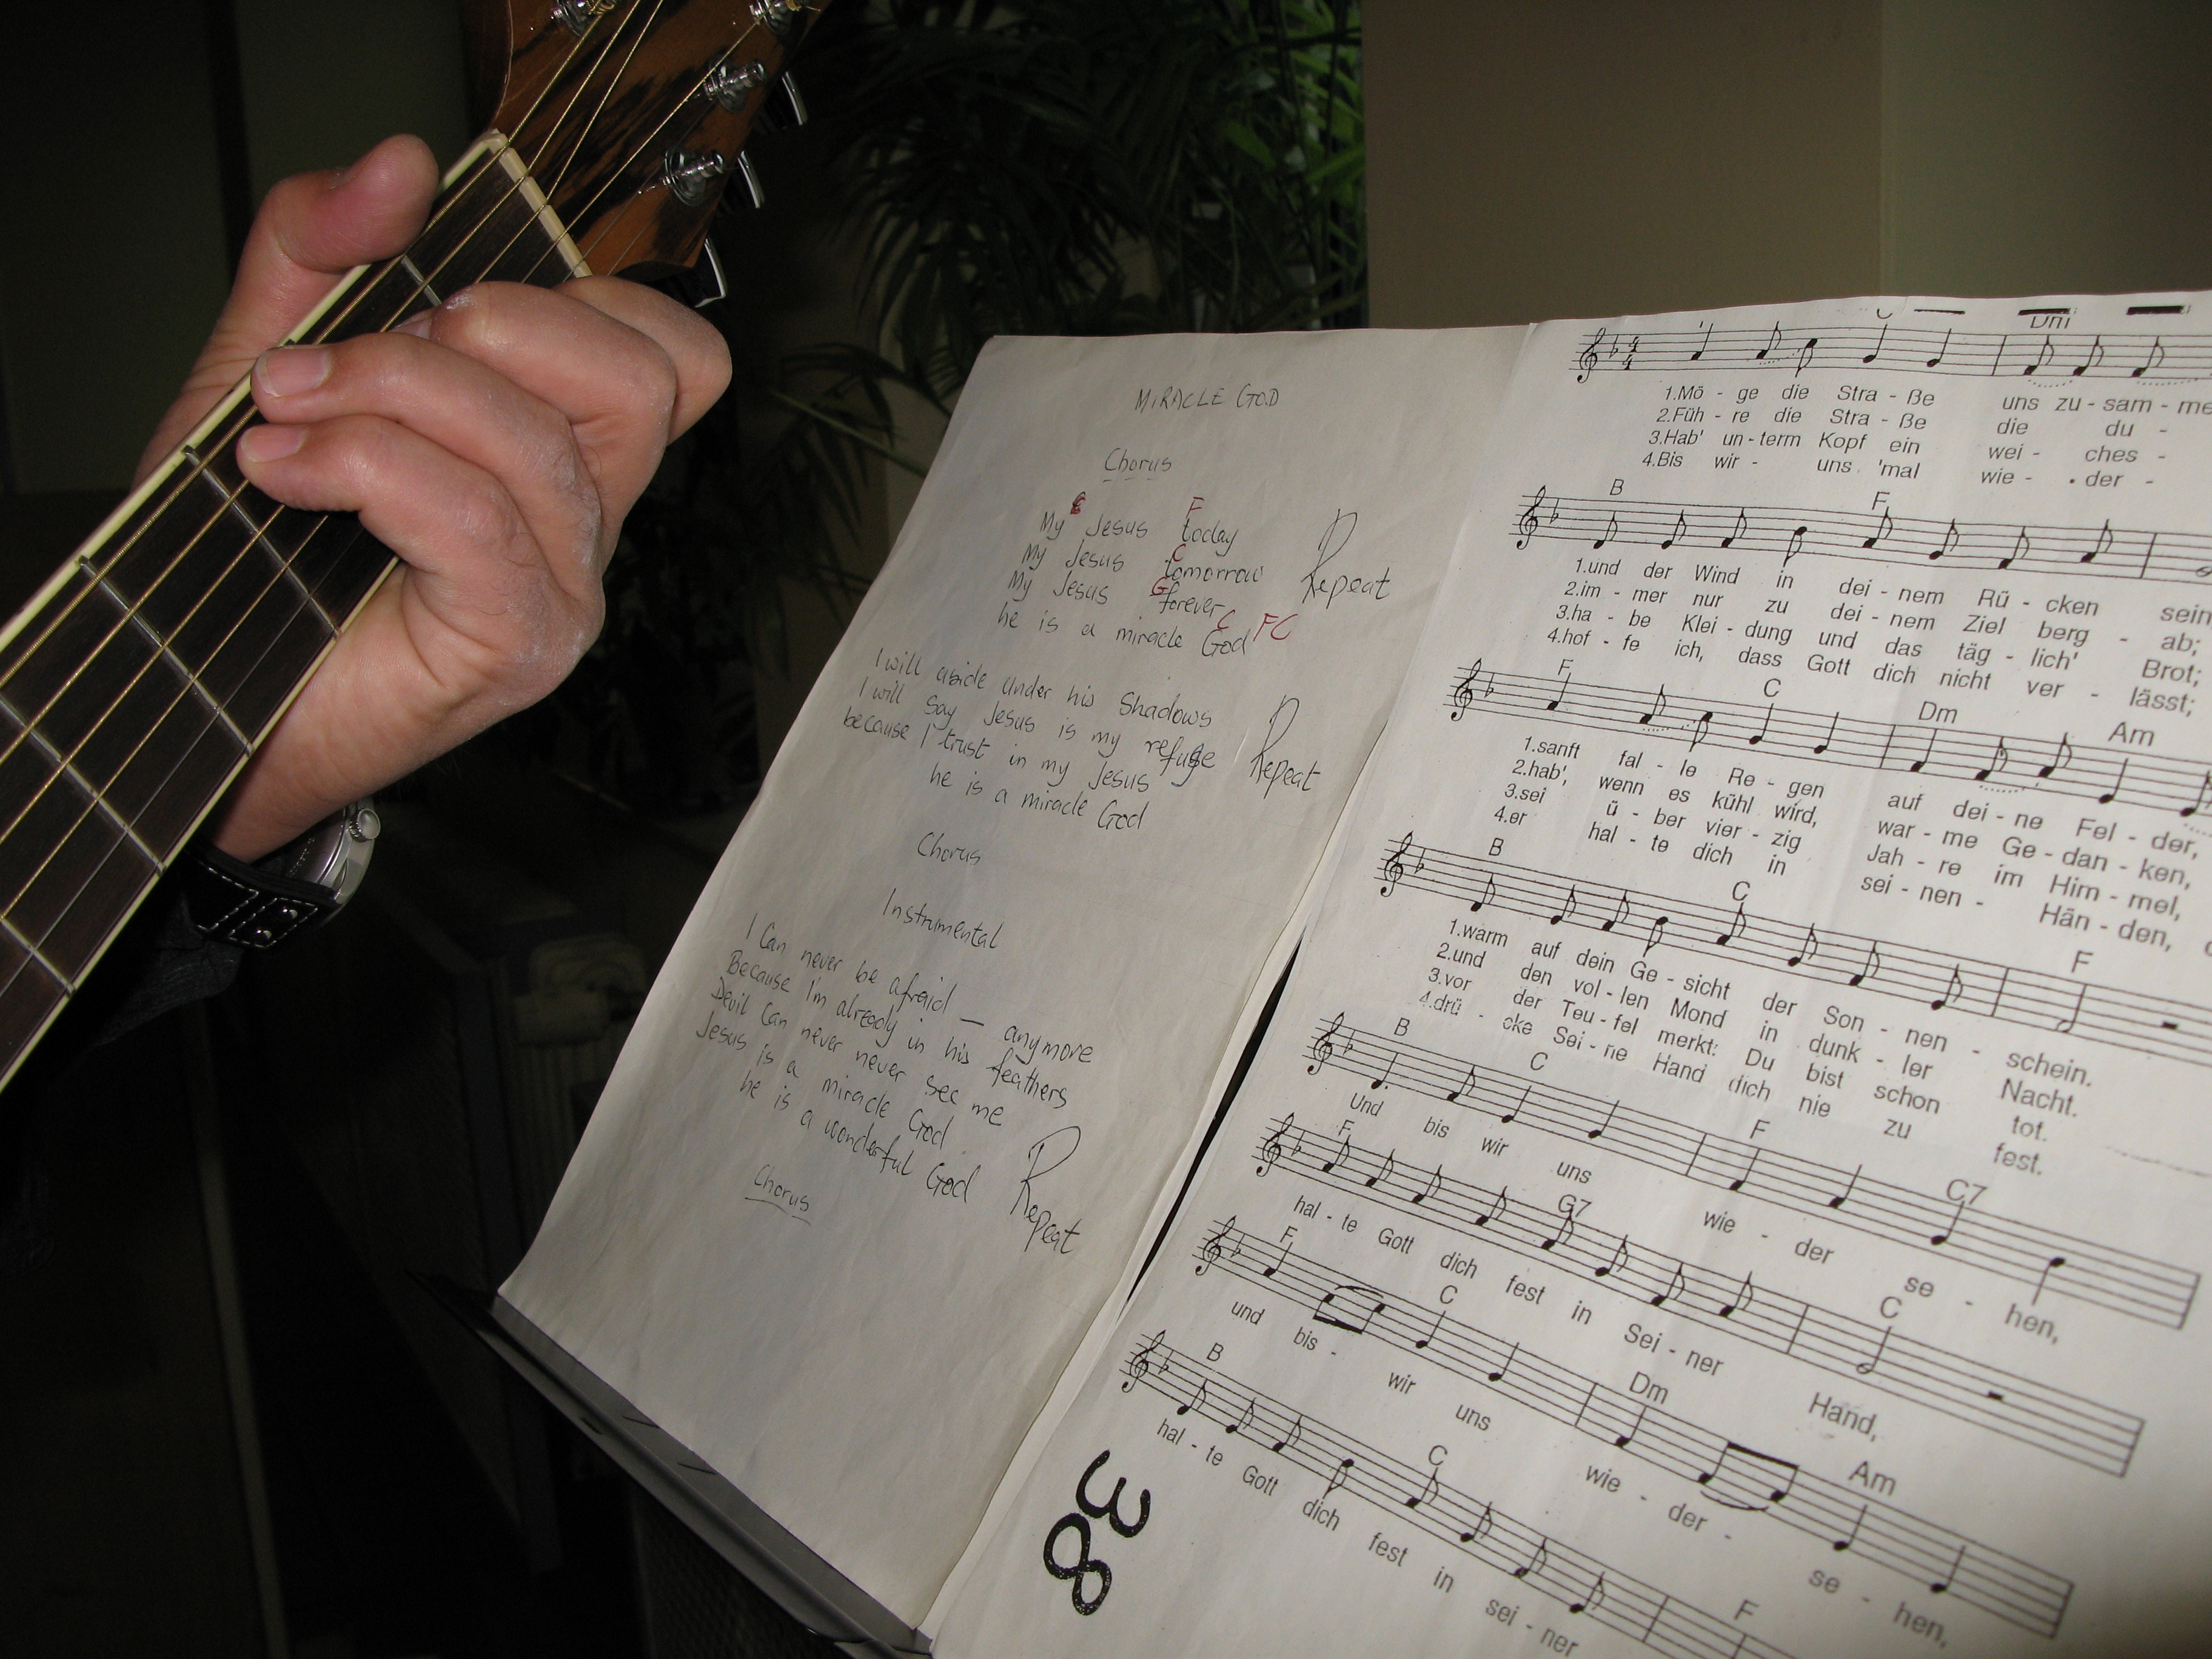 MIRACLE GOD
Chorus
C F
My Jesus today
C
My Jesus tomorrow
Repeat
G
My Jesus forever
C FC
he is a miracle God
I will abide under his Shadows
I will say Jesus is my refuge
Repeat
because I trust in my Jesus
he is a miracle God
Chorus
Instrumental
I Can never be afraid — anymore
Because I'm already in his feathers
Devil Can never never see me
Jesus is a miracle God
he is a wonderful God
Repeat
Chorus
Dm
1.Mö - ge die Stra - ße uns zu - sam - me
2.Füh - re die Stra - ße die du -
3.Hab' un - term Kopf ein wei - ches -
4.Bis wir - uns 'mal wie - der -
B F
1.und der Wind in dei - nem Rü - cken sein
2.im - mer nur zu dei - nem Ziel berg - ab;
3.ha - be Klei - dung und das täg - lich' Brot;
4.hof - fe ich, dass Gott dich nicht ver - lässt;
F C Dm Am
1.sanft fal - le Re - gen auf dei - ne Fel - der,
2.hab', wenn es kühl wird, war - me Ge - dan - ken,
3.sei ü - ber vier - zig Jah - re im Him - mel,
4.er hal - te dich in sei - nen - Hän - den,
B C F
1.warm auf dein Ge - sicht der Son - nen - schein.
2.und den vol - len Mond in dunk - ler Nacht.
3.vor der Teu - fel merkt: Du bist schon tot.
4.drü - cke Sei - ne Hand dich nie zu fest.
B C F C7
Und bis wir uns wie - der se - hen,
F G7 C
hal - te Gott dich fest in Sei - ner Hand,
F C Dm Am
und bis - wir uns wie - der - se - hen,
B C F
hal - te Gott dich fest in sei - ner
38